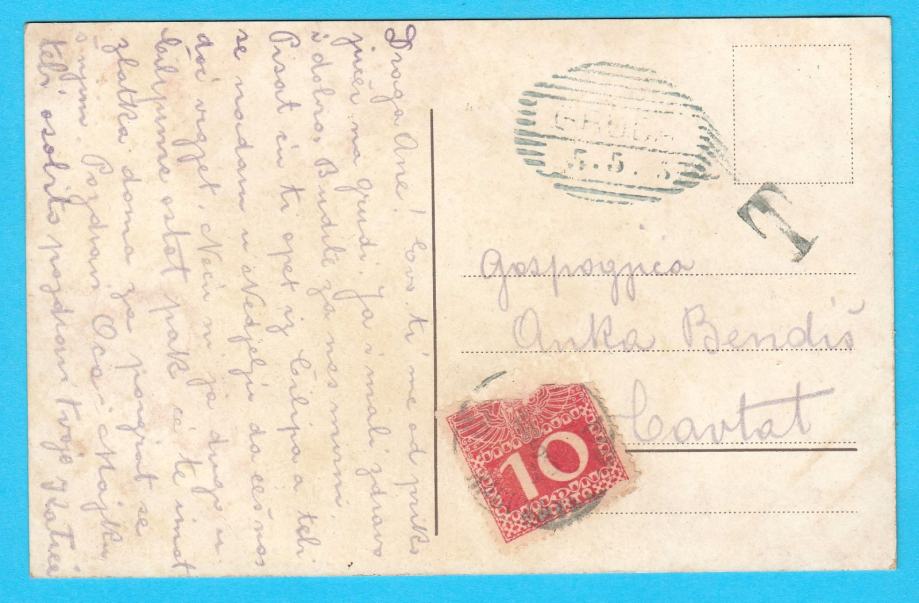 Draga Ane! Evo ti me od priko
jučer na grudi. Ja i mali zdravo
i dobro, Budite za nas mirni.
Pisat ću ti opet iz Čilipa a tebi
se nadam u Nedjelju da ćeš nas
doć vigjet. Neću ni ja dugo u
ostat pak ć te imat
zlatka doma za poigrat se
s njim. Pozdrav Oca i Majku
tebi osobito pozdrav tvoja Zlatica
GRUDA
5.5.
T
Gospogjica
Anka Bendiš
Cavtat
10